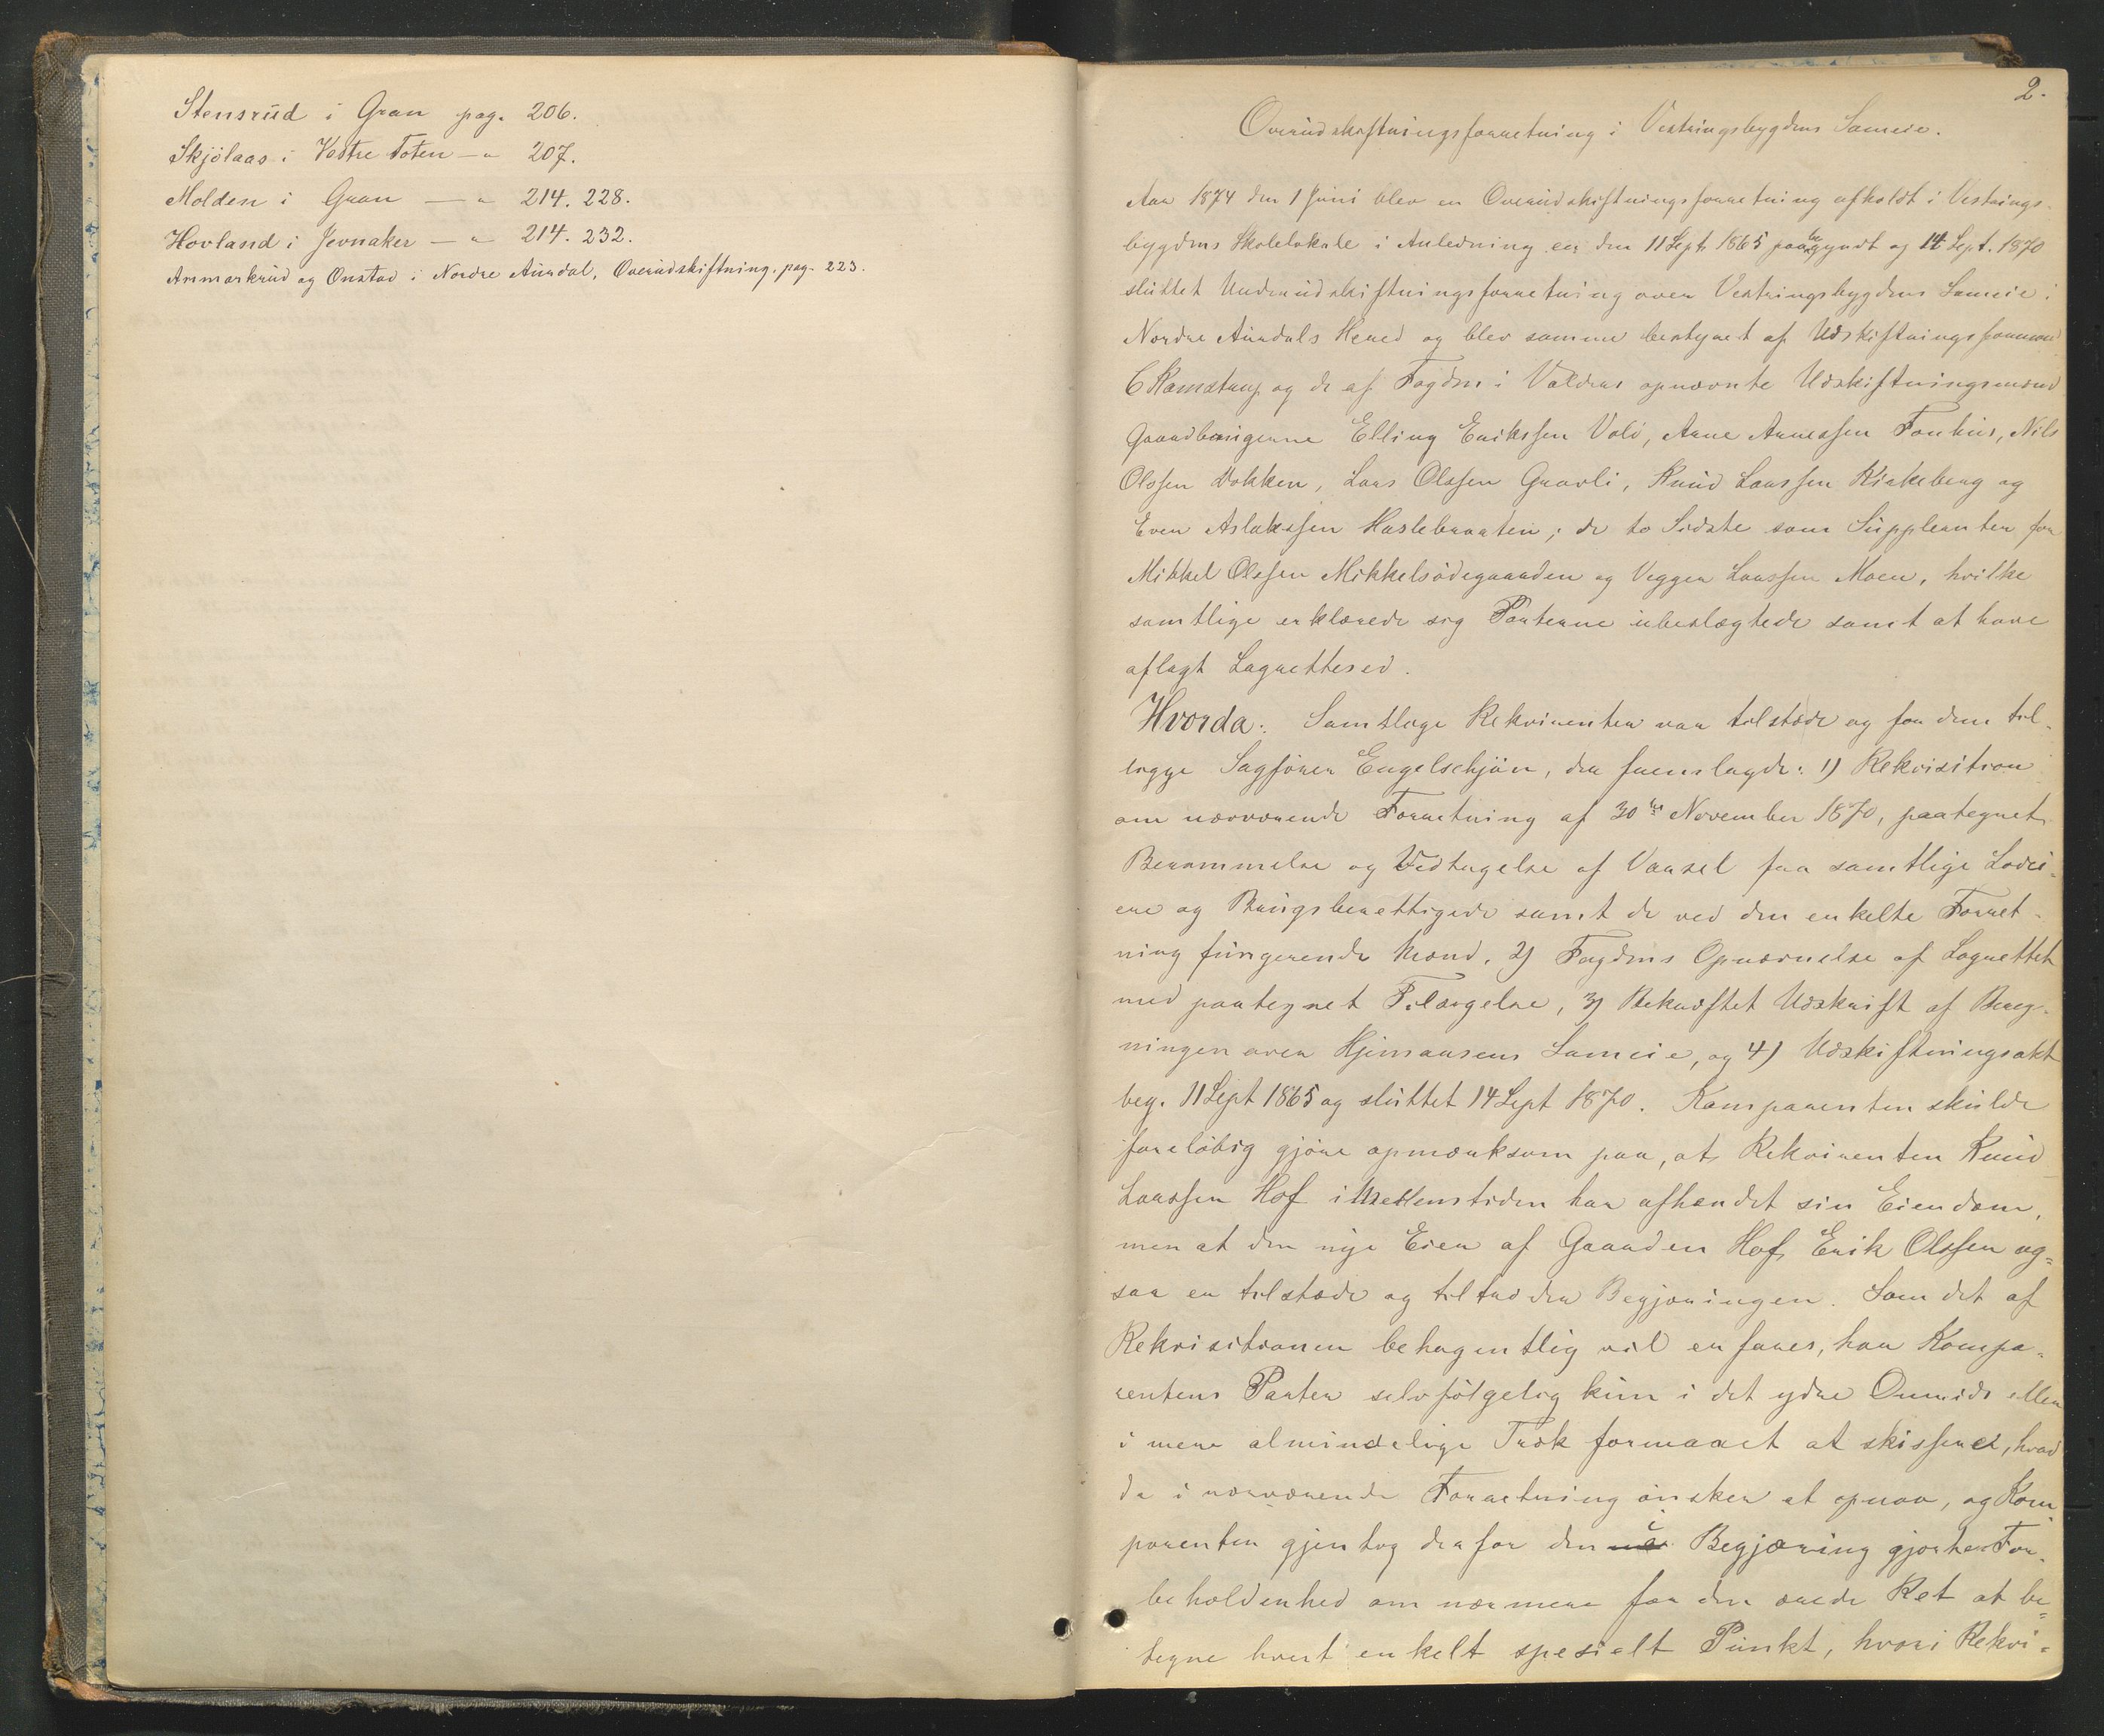 Stensrud i Gran pag. 206.
Skjölaas i Vestre Toten — " 207.
Molden i Gran — " 214. 228.
Hovland i Jevnaker — " 214. 232.
Ammerkrud og Onstad i Nordre Aurdal, Overudskiftning, pag. 223.
2.
Overudskiftningsforretning i Vestringsbygdens Sameie.
Aar 1874 den 1 Juni blev en Overudskiftningsforretning afholdt i Vestrings-
bygdens Skolelokale i Anledning en den 11 Sept. 1865 paabegyndt og 14 Sept. 1870
sluttet Underudskiftningsforretning over Vestringsbygdens Sameie i
Nordre Aurdals Hered og blev samme bestyret af Udskiftningsformand
C Ramstrup og de af Fogden i Valders opnævnte Udskiftningsmænd
Gaardbrugerne Elling Erikssen Vold, Arne Arnessen Fonhus, Nils
Olssen Dokken, Lars Olssen Gravli, Knud Larssen Kirkeberg og
Even Aslakssen Haslebraaten; de to Sidste som Suppleanter for
Mikkel Olssen Mikkelsödegaarden og Vegger Larssen Moen, hvilke
samtlige erklærede sig Parterne ubeslægtede samt at have
aflagt Lagrettesed.
Hvorda: Samtlige Rekvirenter var tilstæde og for dem til-
ligge Sagförer Engelschjön, der fremlagde: 1) Rekvisition
om nærværende Forretning af 30te November 1870, paategnet
Berammelse og Vedtagelse af Varsel fra samtlige Lodei-
ere og Brugsberettigede samt de ved den enkelte Forret-
ning fungerende Mænd. 2) Fogdens Opnævnelse af Lagrettet
med paategnet Tilsigelse, 3) Bekræftet Udskrift af Bereg-
ningen over Hjemaasens Sameie, og 4) Udskiftningsakt
beg. 11 Sept 1865 og sluttet 14 Sept 1870. Komparenten skulde
foreløbig gjöre opmærksom paa, at Rekvirenten Knud
Larssen Hof i Mellemtiden har afhændet sin Eiendom,
men at den nye Eier af Gaarden Hof, Erik Olssen og-
saa er tilstæde og tiltræder Begjæringen. Som det af
Rekvisitionen behagentlig vil erfares, har Kompa-
rentens Parter selvfölgelig kun i det ydre Omrids eller
i mere almindelige Træk formaaet at skissere, hvad
de i nærværende Forretning önsker at opnaa, og Kom-
parenten gjentog derfor den i Begjæring gjorte For-
beholdenhed om nærmere for den ærede Ret at be-
tegne hvert enkelt spesielt Punkt, hvori Rekvi-